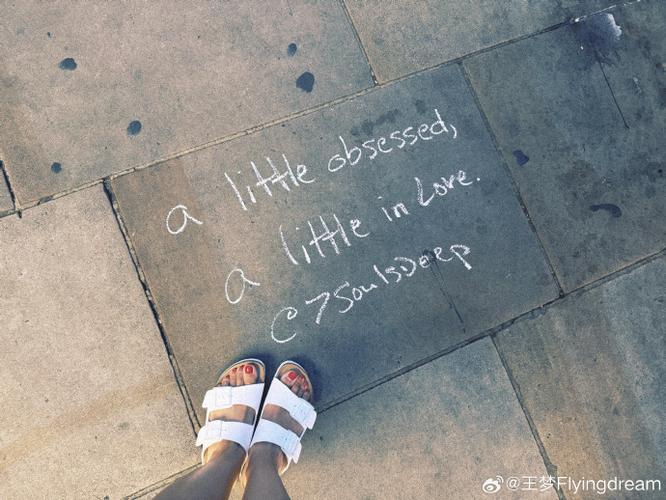 a little obsessed,
a little in Love.
@7SoulsDeep
@王梦Flyingdream